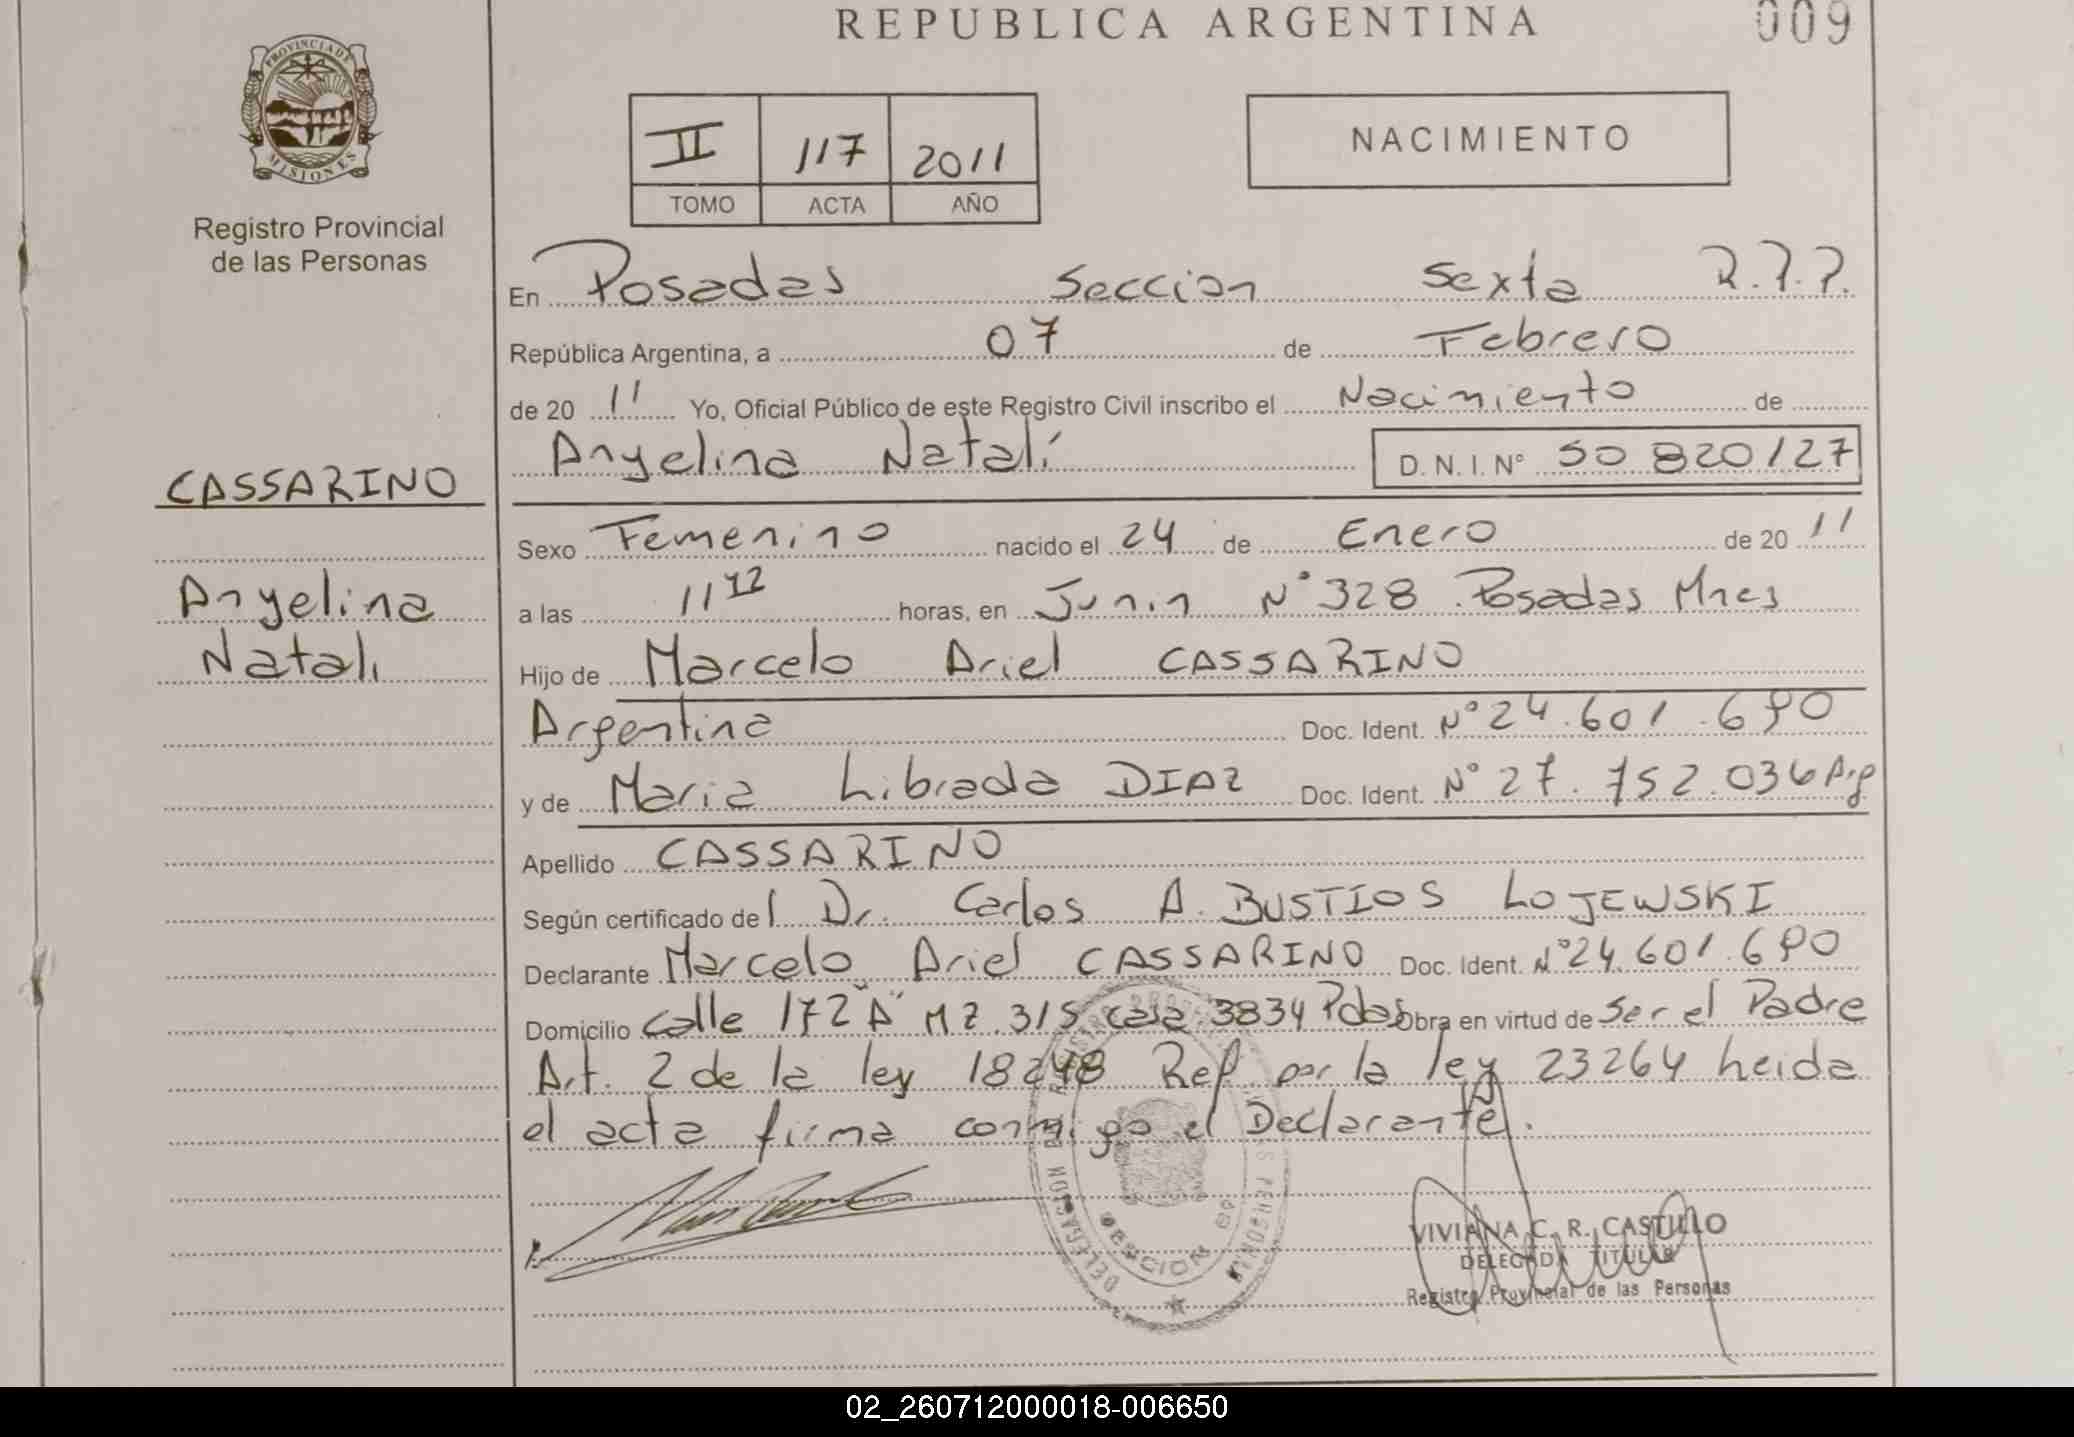 REPUBLICA ARGENTINA
009
PROVINCIA DE MISIONES
Registro Provincial
de las Personas
II 117 2011
TOMO ACTA AÑO
NACIMIENTO
En Posadas Seccion Sexta R.P.P.
República Argentina, a 07 de Febrero
de 20 11 Yo, Oficial Público de este Registro Civil inscribo el Nacimiento de
Anyelina Natalí D.N.I. Nº 50 820127
CASSARINO
Anyelina
Natali
Sexo Femenino nacido el 24 de Enero de 20 11
a las 11 12 horas, en Junin Nº 328 Posadas Mnes
Hijo de Marcelo Ariel CASSARINO
Argentina Doc. Ident. Nº 24.601.690
y de Maria Librada DIAZ Doc. Ident. Nº 27.752.036 Arg
Apellido CASSARINO
Según certificado del Dr. Carlos A. BUSTIOS LOJEWSKI
Declarante Marcelo Ariel CASSARINO Doc. Ident. Nº 24.601.690
Domicilio calle 172 "A" MZ.315 casa 3834 Pdas Obra en virtud de ser el Padre
Art. 2 de la ley 18248 Ref. por la ley 23264 heida
el acta firma conmigo el Declarante.
VIVIANA C. R. CASTILLO
DELEGADA TITULAR
Registro Provincial de las Personas
02_260712000018-006650